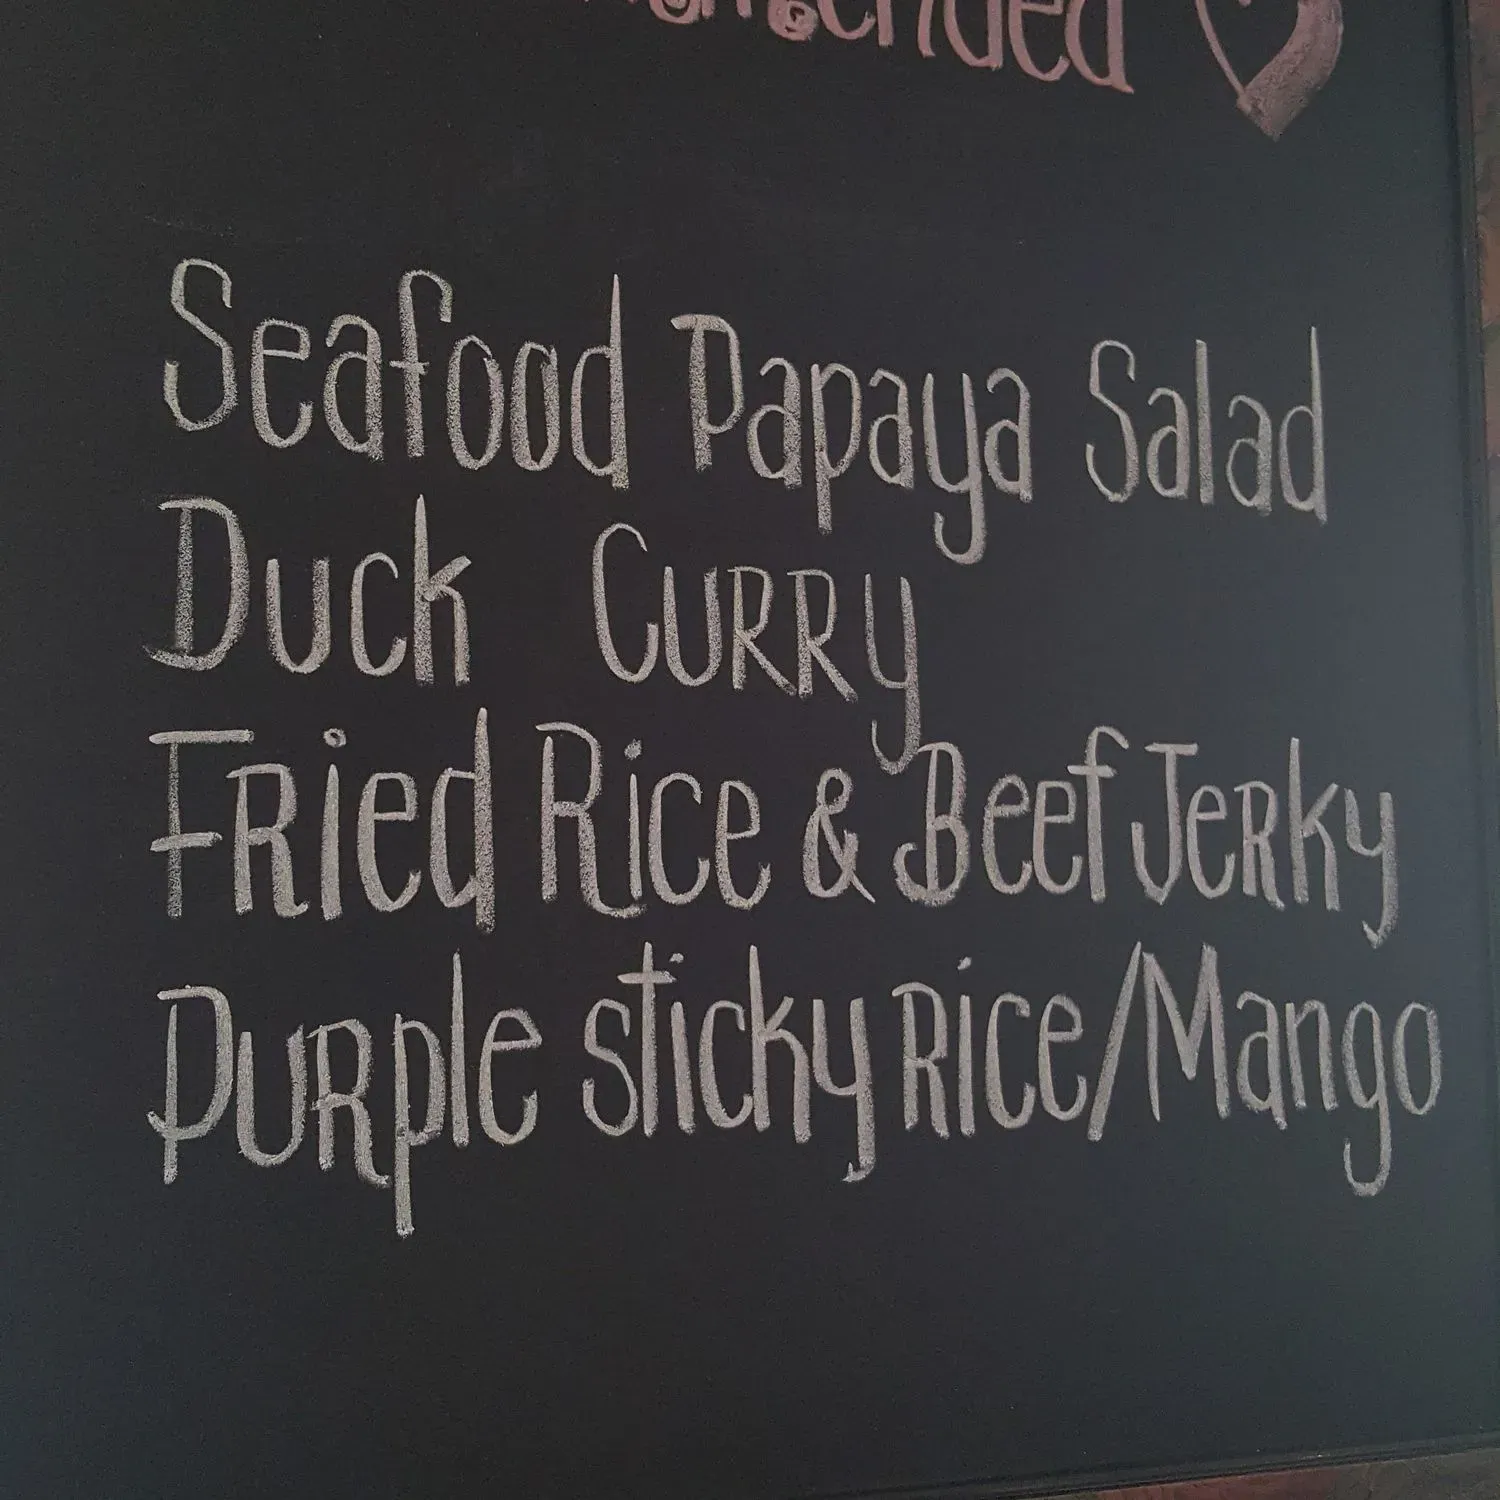 Seafood Papaya Salad
Duck Curry
Fried Rice & Beef Jerky
Purple sticky Rice/Mango